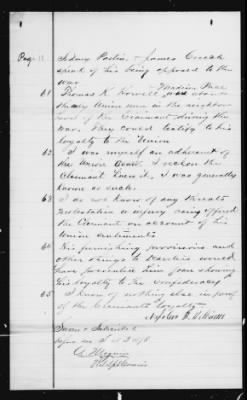 Page 11
Sidney Porter - James Creek
speak of his being opposed to the
war
61 Thomas K. Powell, Madison Pace
steady Union men in the neighbor
hood of the Claimant during the
war. They could testify to his
loyalty to the Union
62 I was myself an adherent of
the Union Cause. I reckon the
Claimant knew it. I was generally
known as such.
63 I do not know of any threats
molestation or injury being offered
the Claimant on account of his
Union sentiments
64 His furnishing provisions and
other things to Deserters would
have prevented him from showing
his loyalty to the Confederacy
65 I know of nothing else in proof
of the Claimants loyalty.
Sworn & Subscribed
before me